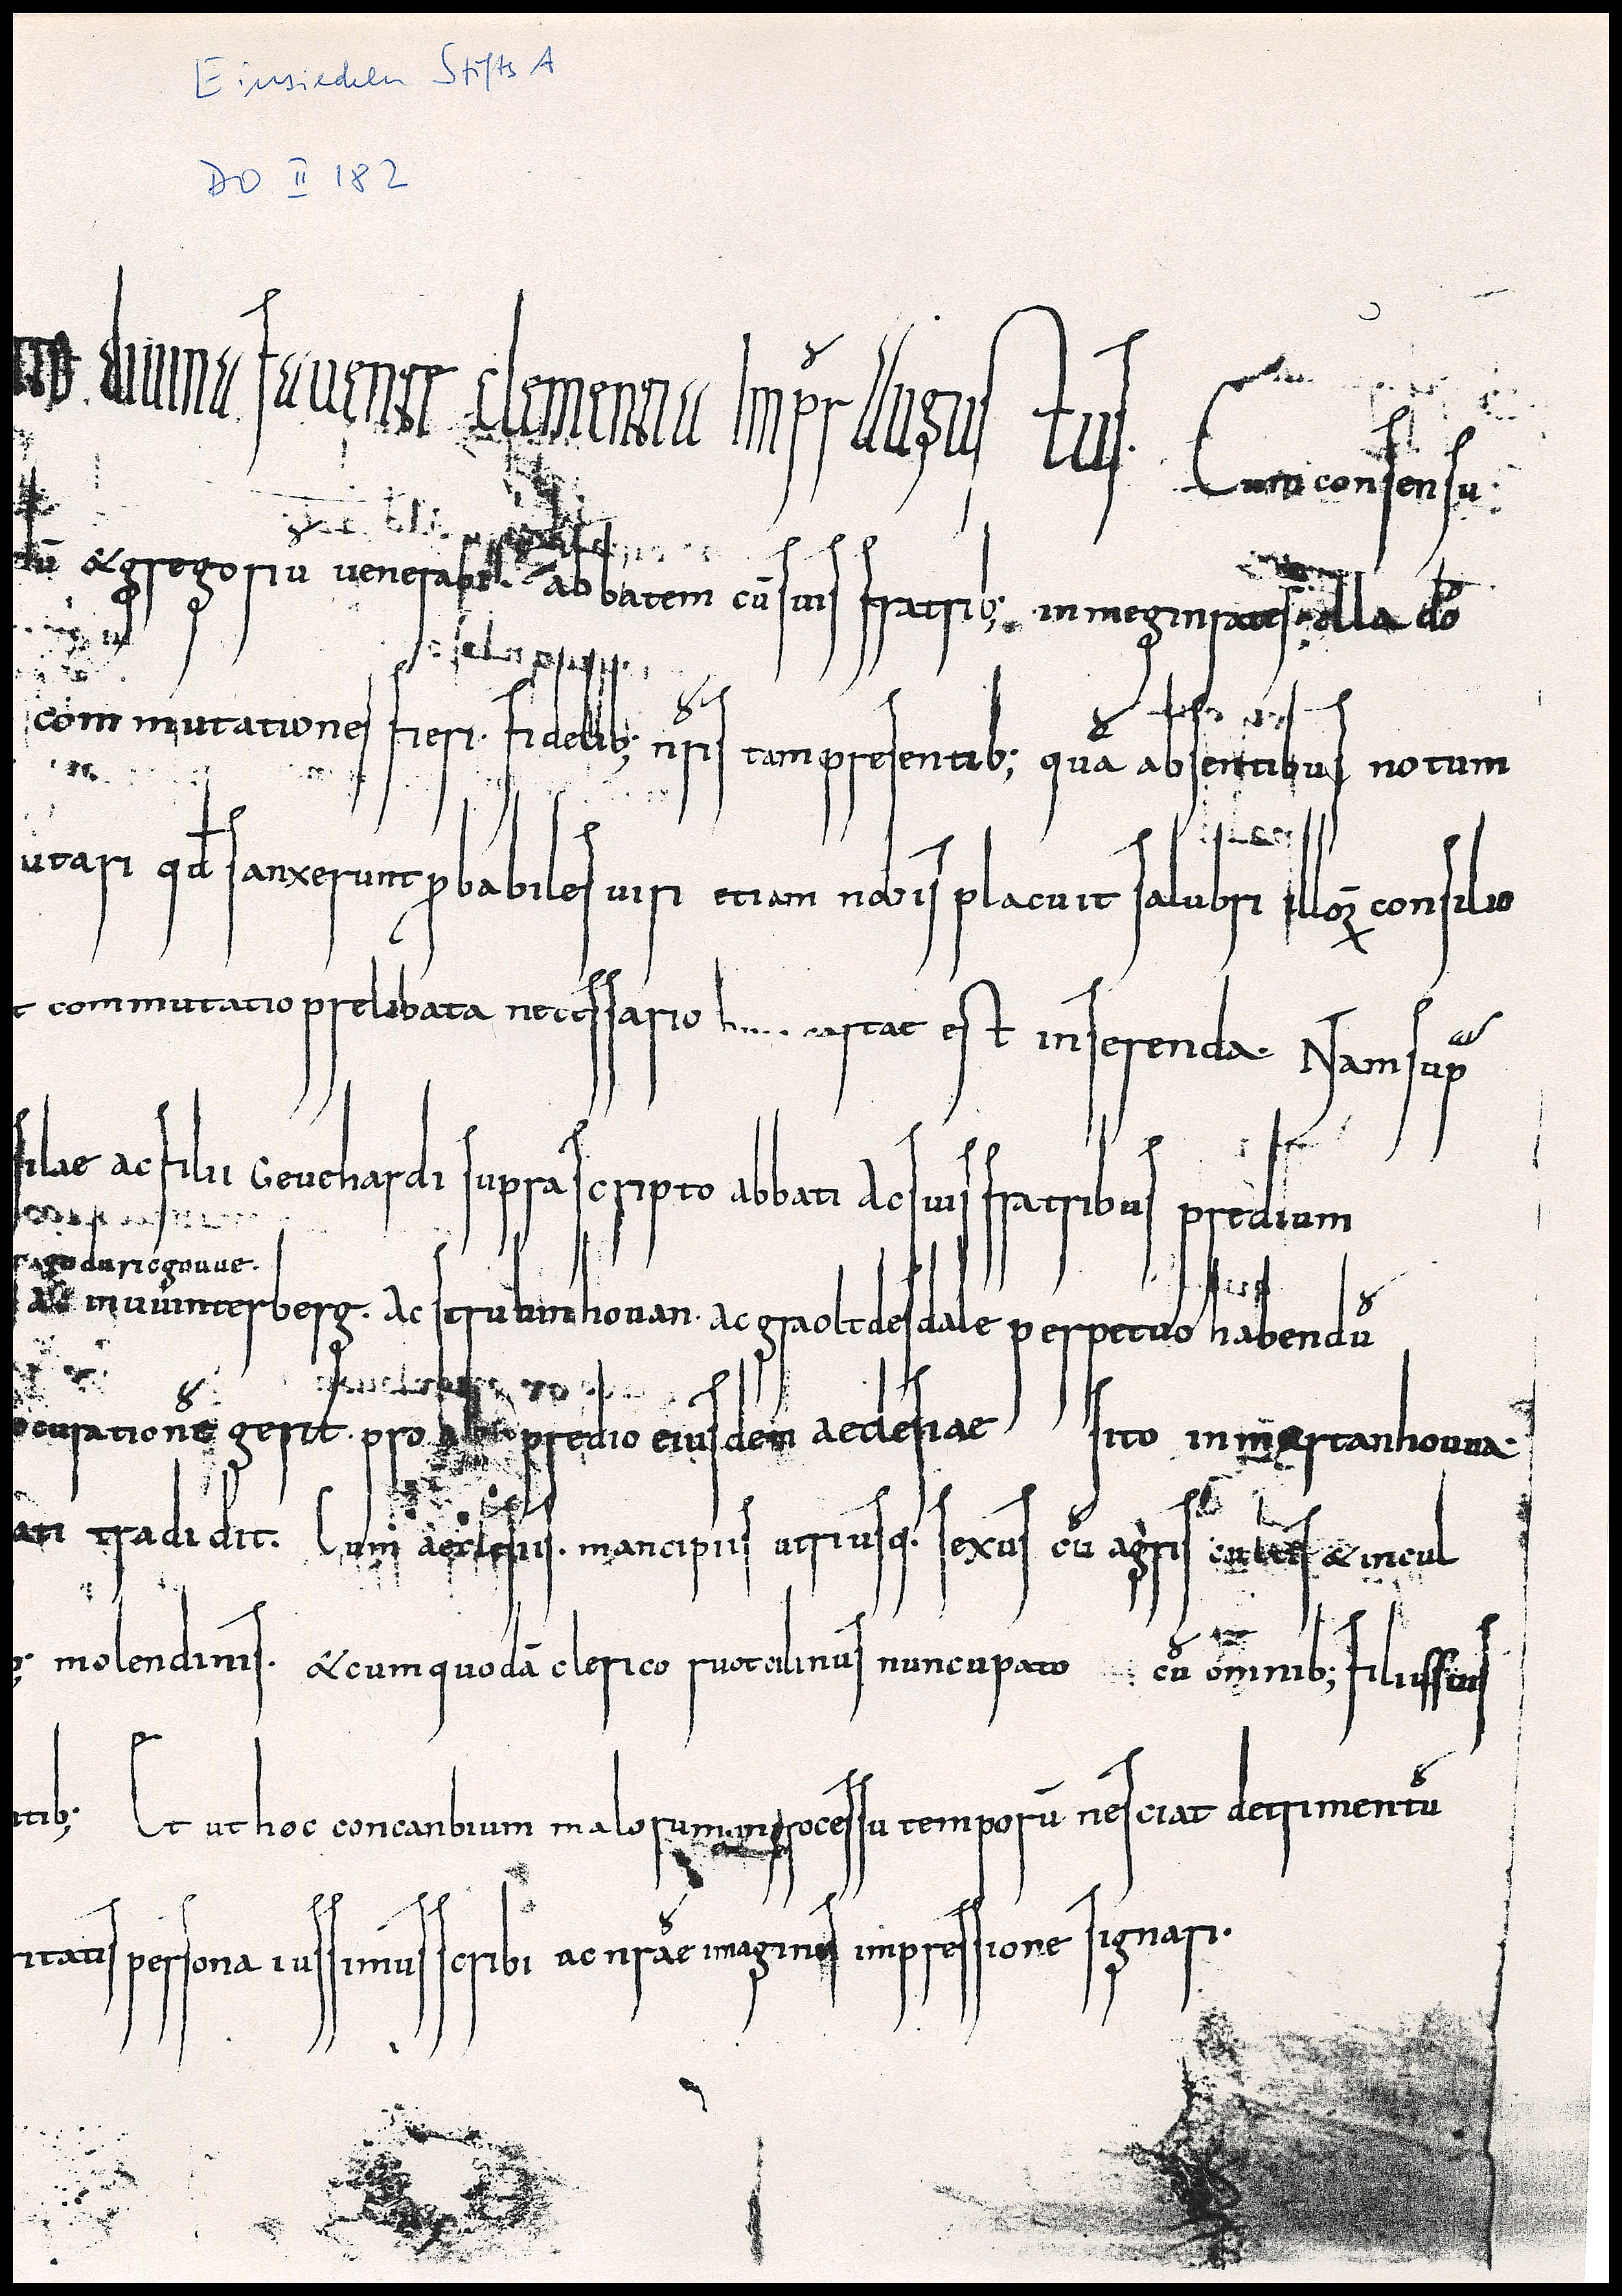 Einsiedeln StiftsA
DO II 182
diuina fauente clementia Impr Augustus. Cum consensu
tū & gregoriū venerabil. abbatem cū suis fratrib; in meginrates cella dō
commutationes fieri. fidelib; nr̄is tam presentib; quā absentibus notum
utari qđ sanxerunt p̱babiles uiri etiam nobis placuit salubri illoꝝ consilio
t commutatio prelibata necessario cartae est inserenda. Nam sup̄
silae ac filii Geuehardi suprascripto abbati Ac suis fratribus predium
pago duricgouue.
in uuinterberg. Ac strubinhouan. Ac graoltdesdale perpetuo habendū
ocurationē gerit. pro predio eiusdem aeclesiae sito in mertanhouua.
ati tradidit. Cum aeclesiis. mancipiis utriusq. sexus cū agris cultis & incul
molendinis. & cum quodā clerico ruotcilinus nuncupato cū omnib; filiis suis
ntib; Et ut hoc concanbium malorum in processu temporū nesciat detrimentū
ritatis persona iussimus scribi ac nrāe imaginis impressione signari.